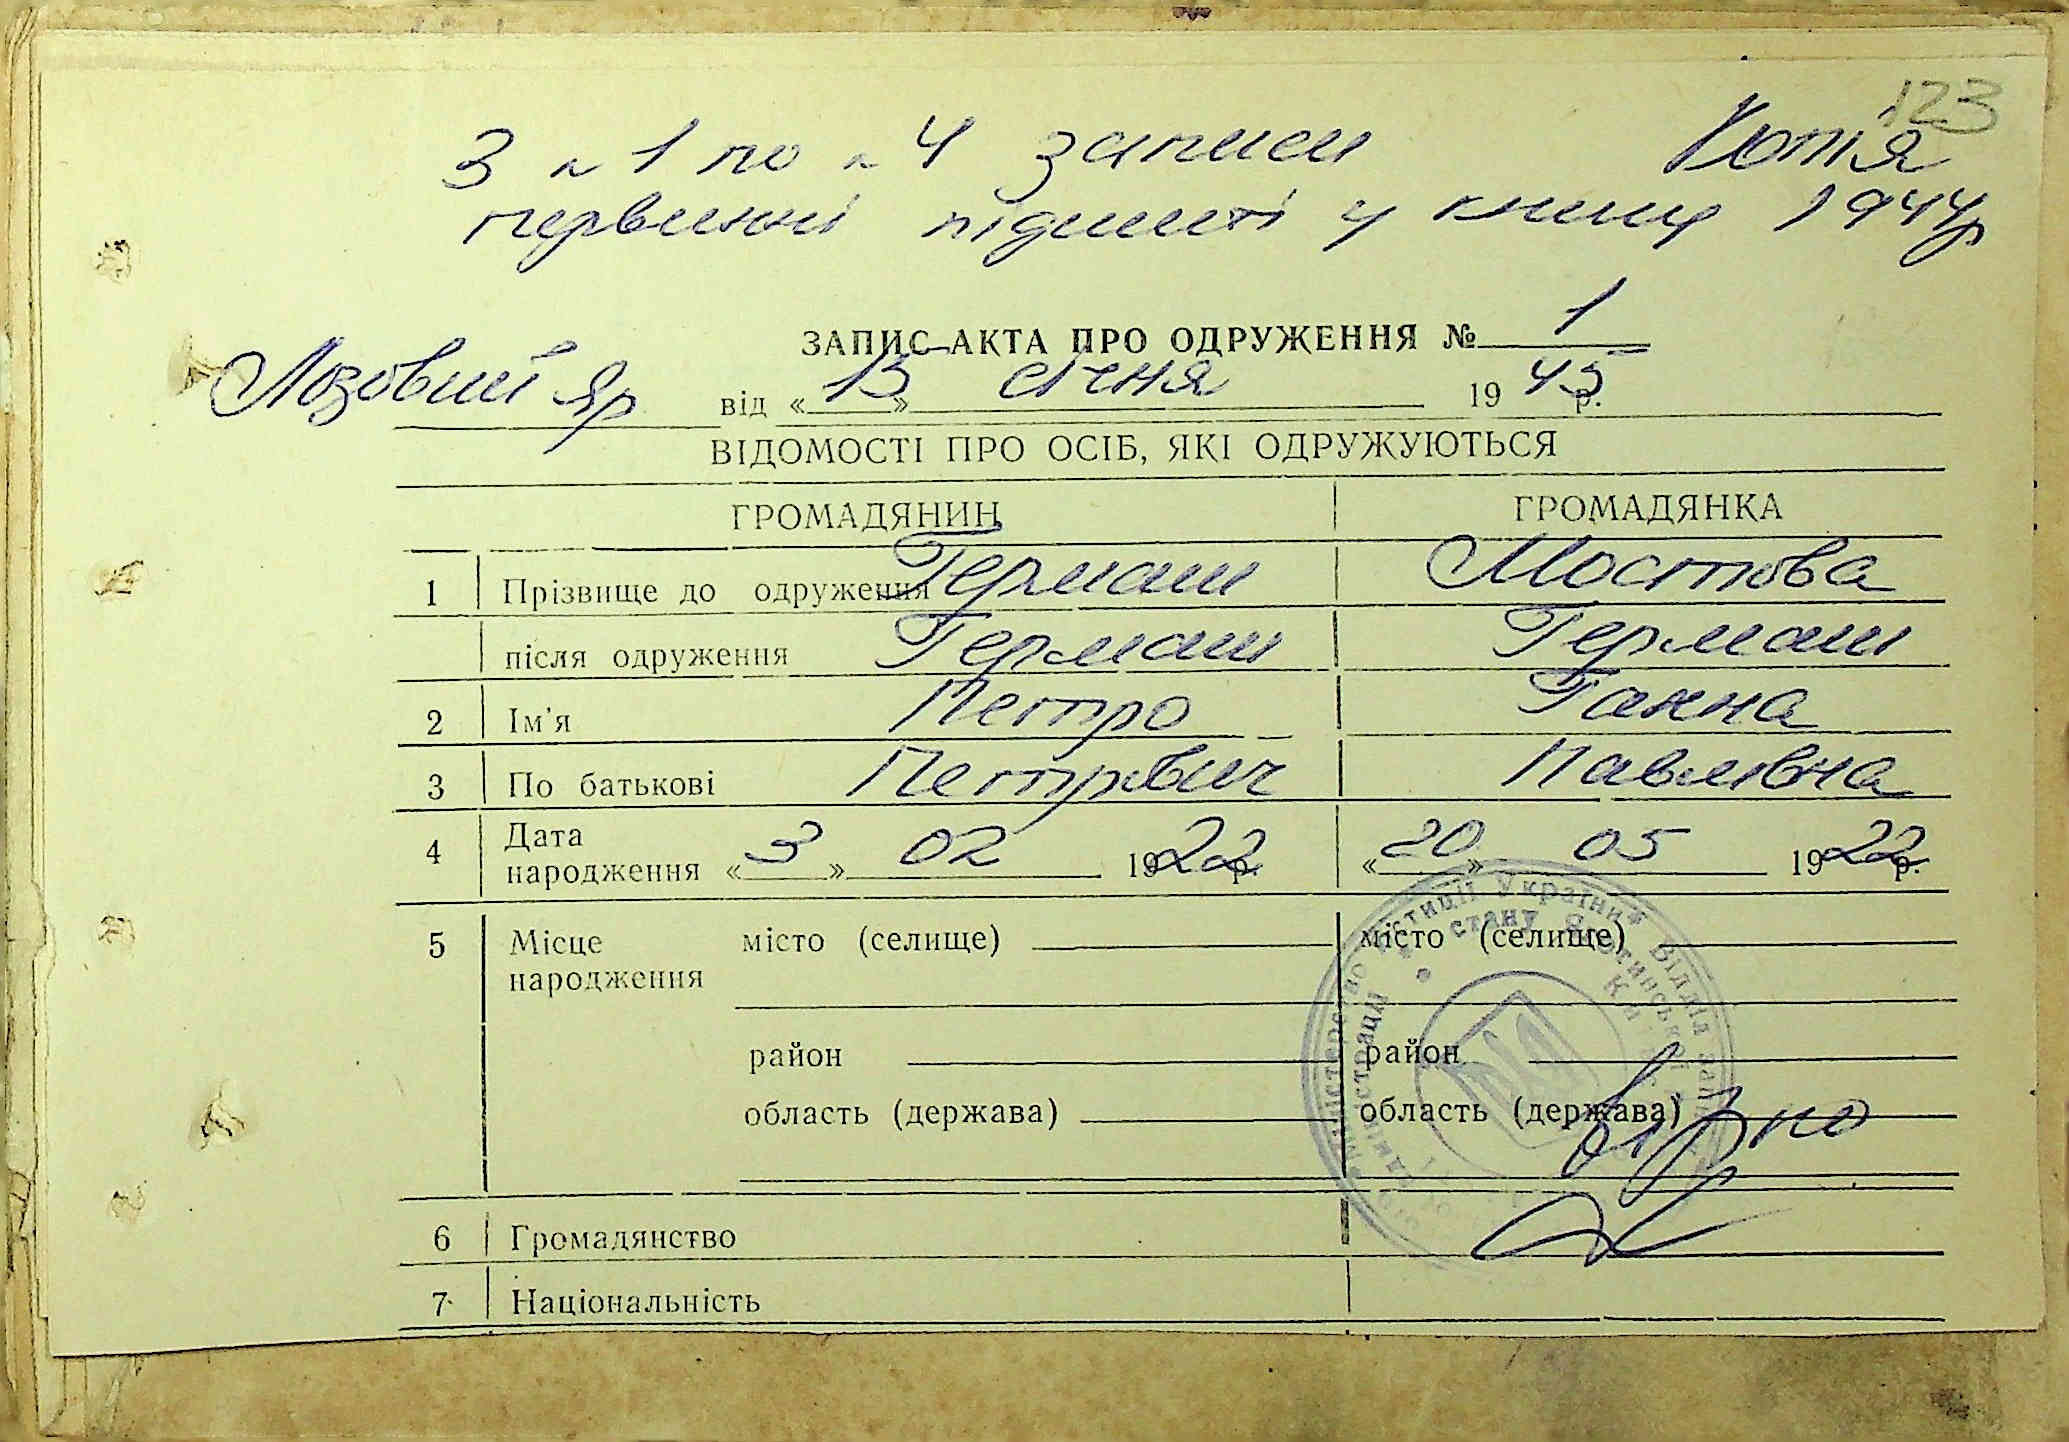 123
З № 1 по № 4 записи Копія
первинні підшиті у книзі 1944р
ЗАПИС АКТА ПРО ОДРУЖЕННЯ № 1
Лозовий Яр від «15» січня 1945 р.
ВІДОМОСТІ ПРО ОСІБ, ЯКІ ОДРУЖУЮТЬСЯ
ГРОМАДЯНИН ГРОМАДЯНКА
1 Прізвище до одруження Гермаш Мостова
після одруження Гермаш Гермаш
2 Ім'я Петро Ганна
3 По батькові Петрович Павлівна
4 Дата народження «3» 02 1922 р. «20» 05 1922 р.
5 Місце народження місто (селище) місто (селище)
район район
область (держава) область (держава)
Вірно
6 Громадянство
7 Національність
Міністерство юстиції України * Відділ
стану Яготинської